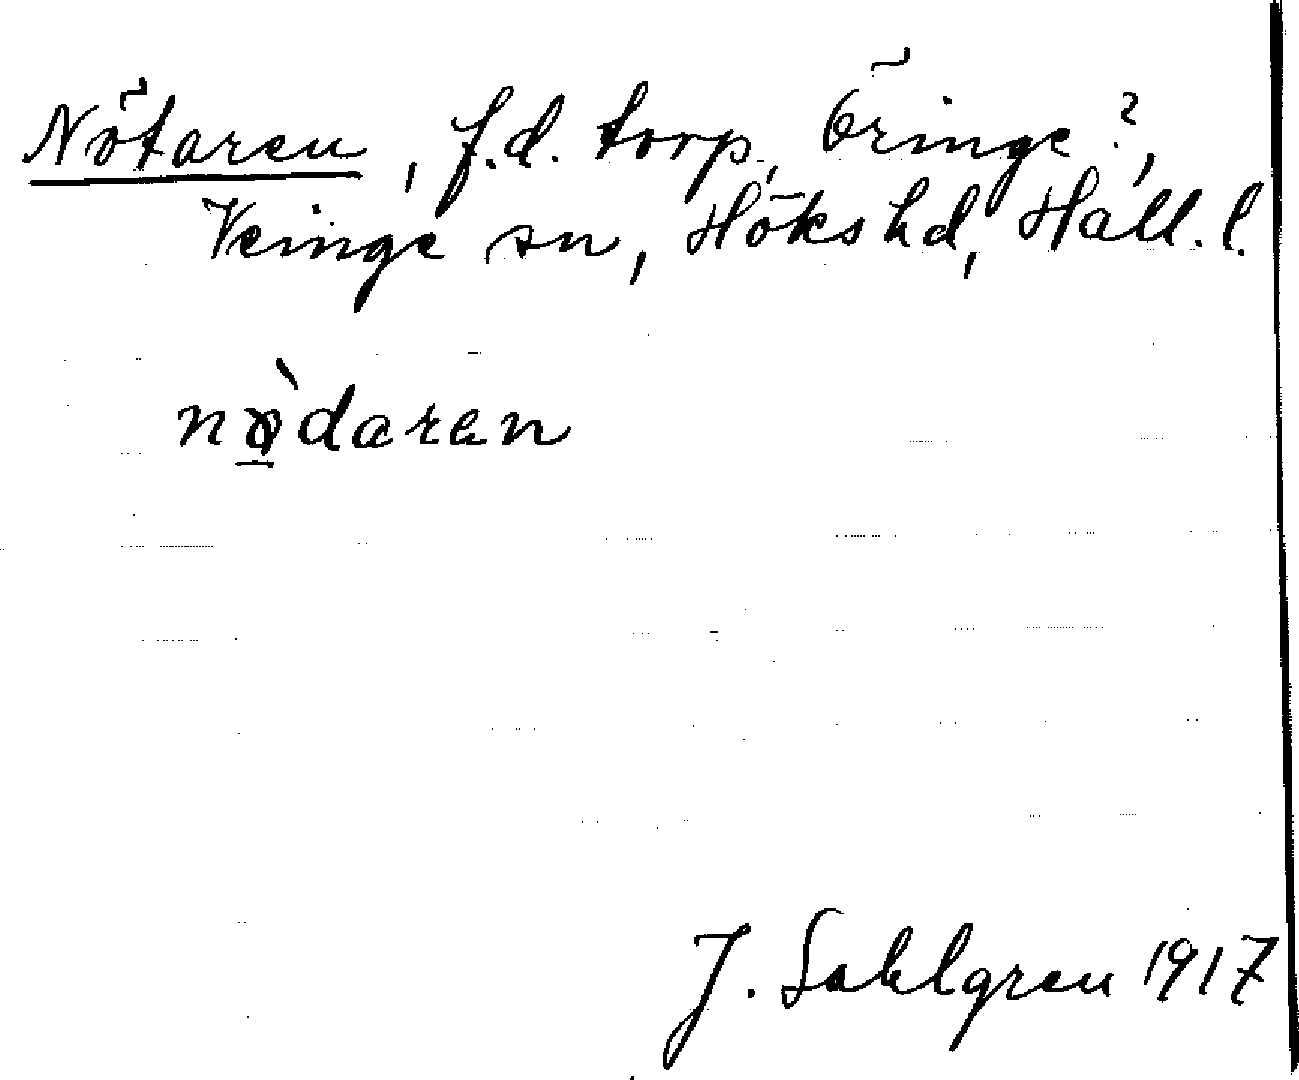 Nötaren, f.d. torp, Öringe?,
Veinge sn, Höks hd, Hall. l.
nø̀daren
J. Sahlgren 1917